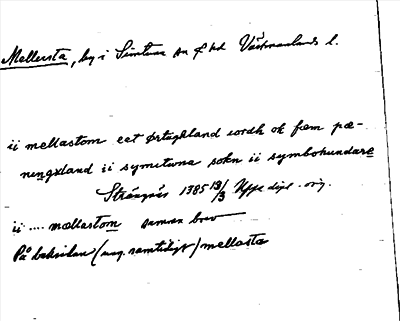 Mellersta, by i Simtuna sn o hd Västmanlands l.
ii mellastom eet ørtughland iordh ok fæm pæ-
ningxland ii symituna sokn ii symbohundare
Strängnäs 1385 13/3 Upps dipl. orig.
ii .... mællastom samma brev
På baksidan (ung. samtidigt) mellasta